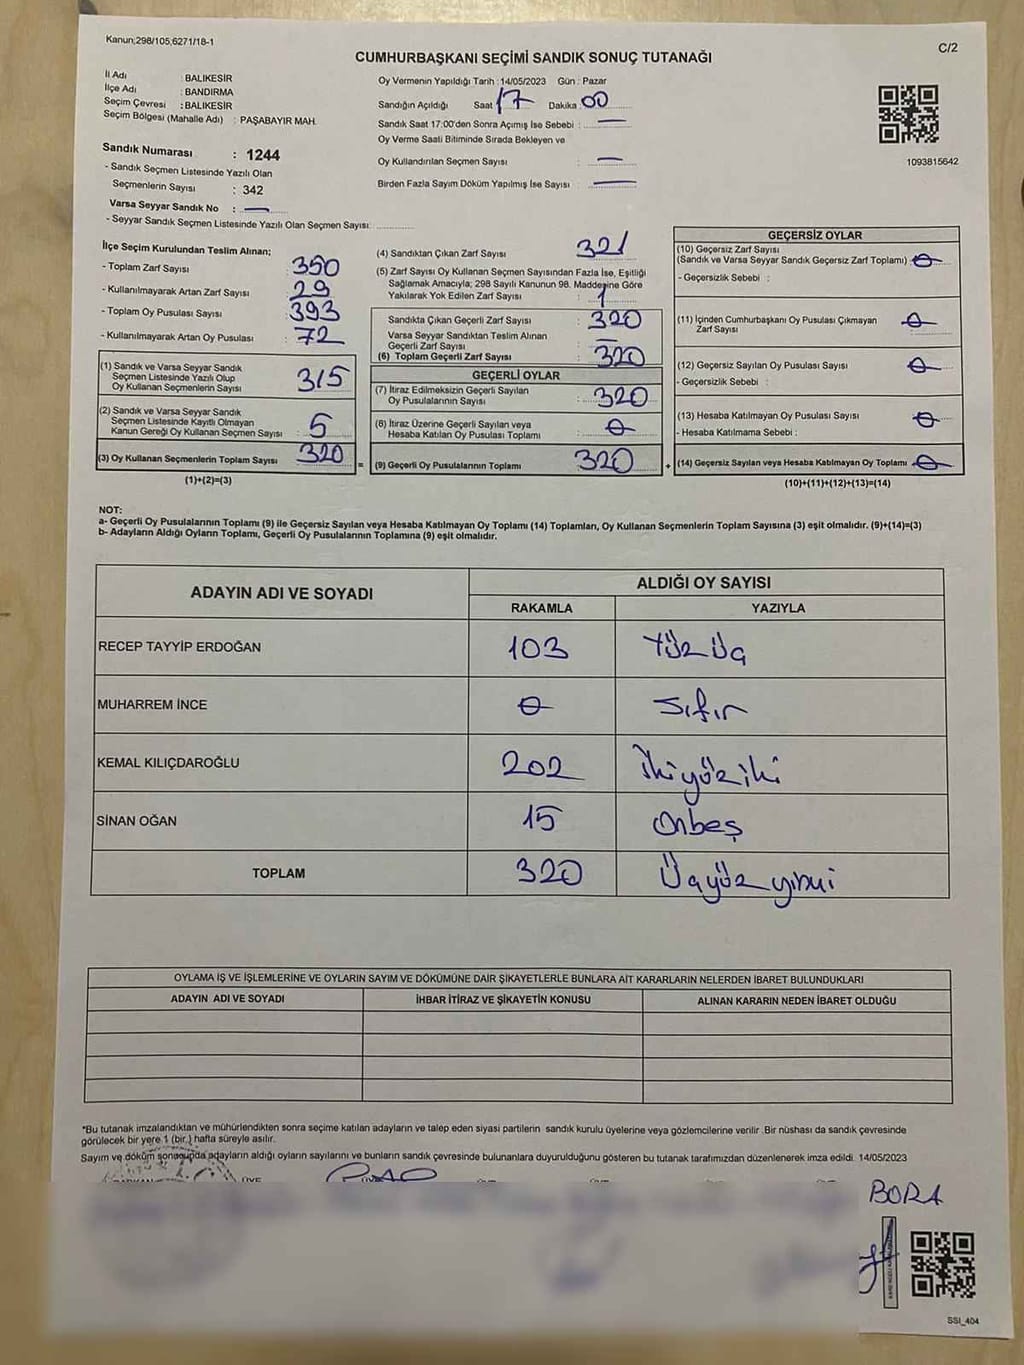 Kanun;298/105,6271/18-1
C/2
CUMHURBAŞKANI SEÇİMİ SANDIK SONUÇ TUTANAĞI
İl Adı : BALIKESİR
İlçe Adı : BANDIRMA
Seçim Çevresi : BALIKESİR
Seçim Bölgesi (Mahalle Adı) : PAŞABAYIR MAH.
Sandık Numarası : 1244
- Sandık Seçmen Listesinde Yazılı Olan
Seçmenlerin Sayısı : 342
Varsa Seyyar Sandık No : —
- Seyyar Sandık Seçmen Listesinde Yazılı Olan Seçmen Sayısı:
Oy Vermenin Yapıldığı Tarih : 14/05/2023 Gün : Pazar
Sandığın Açıldığı Saat 17 Dakika 00
Sandık Saat 17:00'den Sonra Açımış İse Sebebi : —
Oy Verme Saati Bitiminde Sırada Bekleyen ve
Oy Kullandırılan Seçmen Sayısı : —
Birden Fazla Sayım Döküm Yapılmış İse Sayısı : —
1093815642
İlçe Seçim Kurulundan Teslim Alınan;
- Toplam Zarf Sayısı : 350
- Kullanılmayarak Artan Zarf Sayısı : 29
- Toplam Oy Pusulası Sayısı : 393
- Kullanılmayarak Artan Oy Pusulası : 72
(1) Sandık ve Varsa Seyyar Sandık
Seçmen Listesinde Yazılı Olup
Oy Kullanan Seçmenlerin Sayısı : 315
(2) Sandık ve Varsa Seyyar Sandık
Seçmen Listesinde Kayıtlı Olmayan
Kanun Gereği Oy Kullanan Seçmen Sayısı : 5
(3) Oy Kullanan Seçmenlerin Toplam Sayısı 320
(1)+(2)=(3)
(4) Sandıktan Çıkan Zarf Sayısı : 321
(5) Zarf Sayısı Oy Kullanan Seçmen Sayısından Fazla İse, Eşitliği
Sağlamak Amacıyla; 298 Sayılı Kanunun 98. Maddesine Göre
Yakılarak Yok Edilen Zarf Sayısı : 1
Sandıkta Çıkan Geçerli Zarf Sayısı : 320
Varsa Seyyar Sandıktan Teslim Alınan
Geçerli Zarf Sayısı : —
(6) Toplam Geçerli Zarf Sayısı : 320
GEÇERLİ OYLAR
(7) İtiraz Edilmeksizin Geçerli Sayılan
Oy Pusulalarının Sayısı : 320
(8) İtiraz Üzerine Geçerli Sayılan veya
Hesaba Katılan Oy Pusulası Toplamı : 0
= (9) Geçerli Oy Pusulalarının Toplamı 320 +
GEÇERSİZ OYLAR
(10) Geçersiz Zarf Sayısı
(Sandık ve Varsa Seyyar Sandık Geçersiz Zarf Toplamı) : 0
- Geçersizlik Sebebi :
(11) İçinden Cumhurbaşkanı Oy Pusulası Çıkmayan
Zarf Sayısı : 0
(12) Geçersiz Sayılan Oy Pusulası Sayısı : 0
- Geçersizlik Sebebi :
(13) Hesaba Katılmayan Oy Pusulası Sayısı : 0
- Hesaba Katılmama Sebebi :
(14) Geçersiz Sayılan veya Hesaba Katılmayan Oy Toplamı : 0
(10)+(11)+(12)+(13)=(14)
NOT:
a- Geçerli Oy Pusulalarının Toplamı (9) ile Geçersiz Sayılan veya Hesaba Katılmayan Oy Toplamı (14) Toplamları, Oy Kullanan Seçmenlerin Toplam Sayısına (3) eşit olmalıdır. (9)+(14)=(3)
b- Adayların Aldığı Oyların Toplamı, Geçerli Oy Pusulalarının Toplamına (9) eşit olmalıdır.
ADAYIN ADI VE SOYADI ALDIĞI OY SAYISI
RAKAMLA YAZIYLA
RECEP TAYYİP ERDOĞAN 103 Yüzüç
MUHARREM İNCE 0 Sıfır
KEMAL KILIÇDAROĞLU 202 İkiyüziki
SİNAN OĞAN 15 Onbeş
TOPLAM 320 Üçyüzyirmi
OYLAMA İŞ VE İŞLEMLERİNE VE OYLARIN SAYIM VE DÖKÜMÜNE DAİR ŞİKAYETLERLE BUNLARA AİT KARARLARIN NELERDEN İBARET BULUNDUKLARI
ADAYIN ADI VE SOYADI İHBAR İTİRAZ VE ŞİKAYETİN KONUSU ALINAN KARARIN NEDEN İBARET OLDUĞU
*Bu tutanak imzalandıktan ve mühürlendikten sonra seçime katılan adayların ve talep eden siyasi partilerin sandık kurulu üyelerine veya gözlemcilerine verilir .Bir nüshası da sandık çevresinde
görülecek bir yere 1 (bir ) hafta süreyle asılır.
Sayım ve döküm sonucunda adayların aldığı oyların sayılarını ve bunların sandık çevresinde bulunanlara duyurulduğunu gösteren bu tutanak tarafımızdan düzenlenerek imza edildi. 14/05/2023
BORA
SSI_404